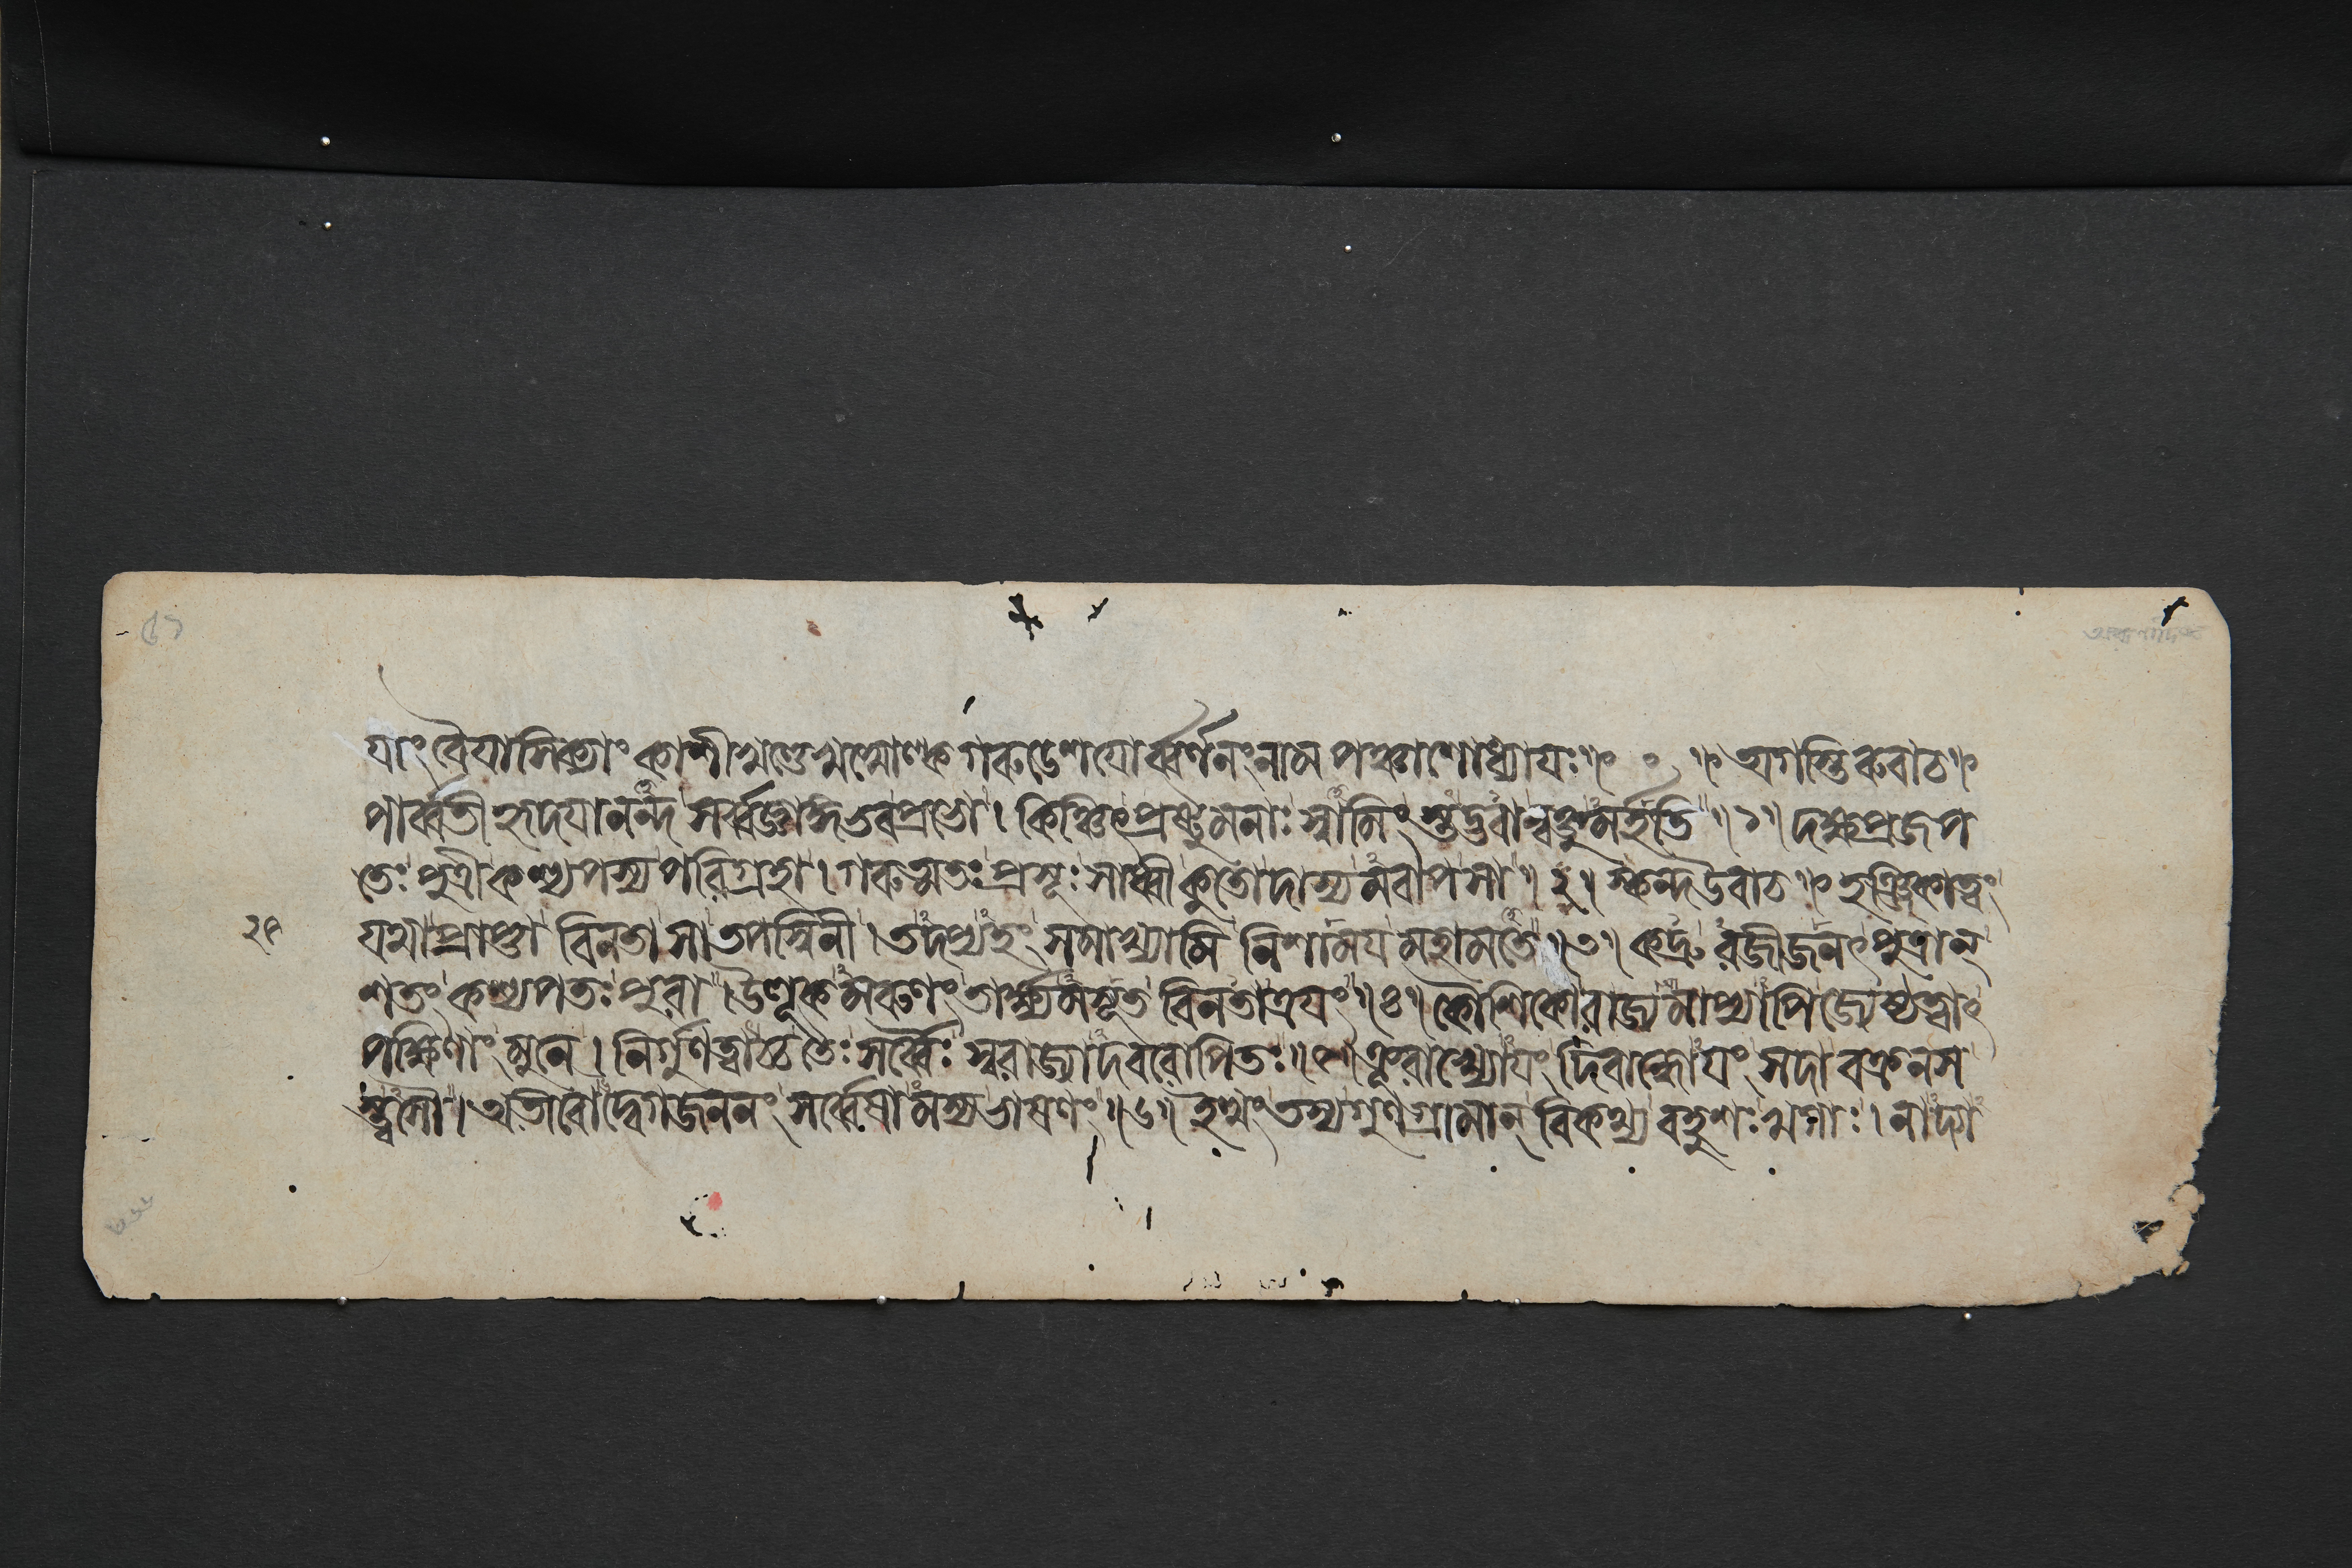 যাং বৈযাসিক্যাং কাশীখণ্ডে খখোল্ক গরুডেশযোর্ব্বর্ণনং নাম পঞ্চাশোধ্যাযঃ॥ ০ ॥ অগস্তিরুবাচ॥
পার্ব্বতীহৃদযানন্দ সর্ব্বজ্ঞাঙ্গভব প্রভো। কিঞ্চিৎ প্রষ্টুমনাঃ স্বামিংস্তদ্ভবান্বক্তুমর্হতি॥১॥ দক্ষপ্রজাপ
তেঃ পুত্রী কশ্যপস্য পরিগ্রহা। গরুত্মতঃ প্রসূঃ সাধ্বী কুতো দাস্যমবাপ সা॥২॥ স্কন্দ উবাচ॥ হঞ্জিকাত্বং
২৫ যথা প্রাপ্তা বিনতা সা তপস্বিনী। তদপ্যহং সমাখ্যামি নিশাময মহামতে॥৩॥ কদ্রূরজীজনৎ পুত্রান্
শতং কশ্যপতঃ পুরা। উলূকমরুণং তার্ক্ষ্যমসূত বিনতাত্রযং॥৪॥ কৌশিকো রাজ্যমাপ্যাপি জ্যেষ্ঠত্বাৎ
পক্ষিণাং মুনে। নির্গুণত্বাচ্চ তৈঃ সর্ব্বৈঃ স্বরাজ্যাদবরোপিতঃ॥৫॥ ক্রূরাখ্যোযং দিবান্ধোযং সদা বক্রনখ
স্ত্বসৌ। অতীবোদ্বেগজননং সর্ব্বেষামস্য ভাষণং॥৬॥ ইত্থং তস্য গুণগ্রামান্ বিকথ্য বহুশঃ খগাঃ। নাদ্যা